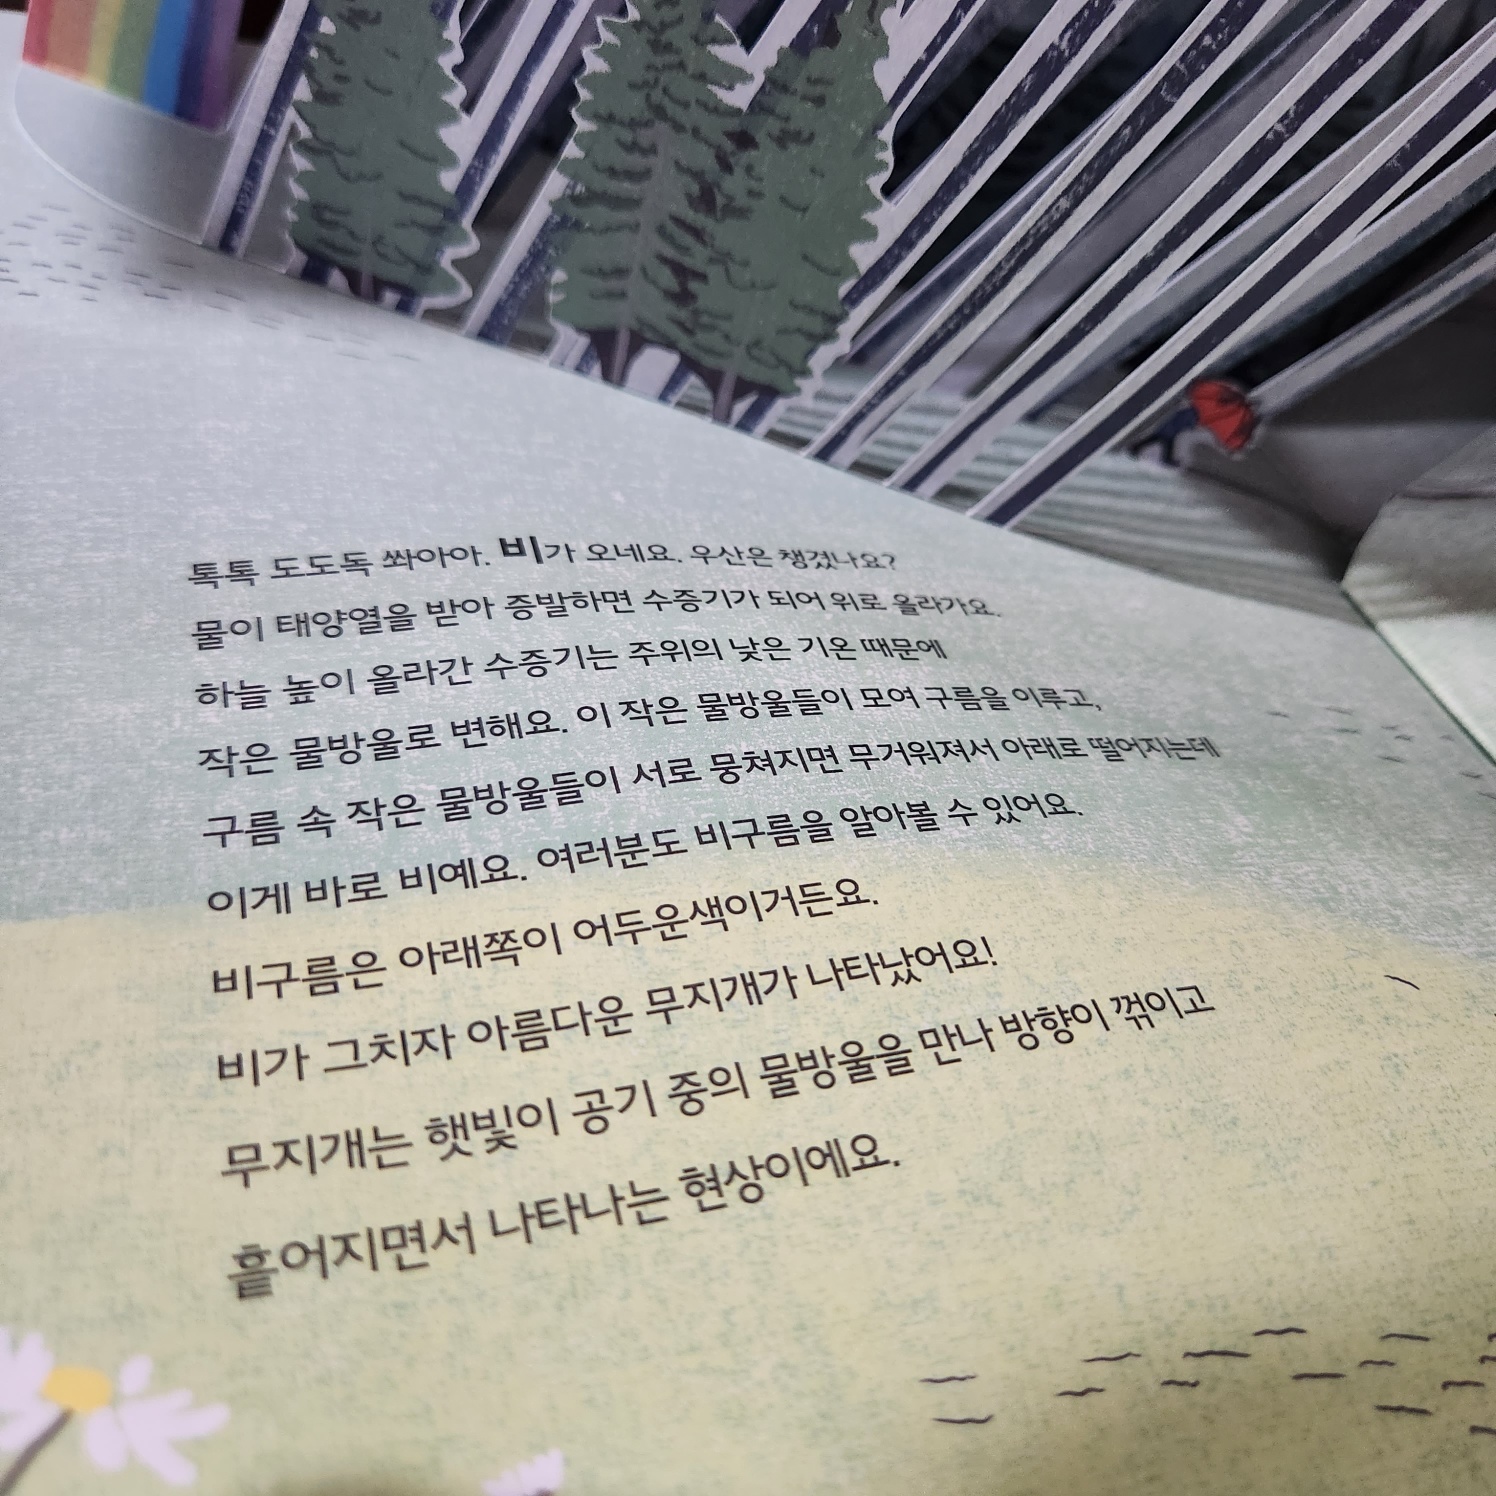 톡톡 도도독 쏴아아. 비가 오네요. 우산은 챙겼나요?
물이 태양열을 받아 증발하면 수증기가 되어 위로 올라가요.
하늘 높이 올라간 수증기는 주위의 낮은 기온 때문에
작은 물방울로 변해요. 이 작은 물방울들이 모여 구름을 이루고,
구름 속 작은 물방울들이 서로 뭉쳐지면 무거워져서 아래로 떨어지는데
이게 바로 비예요. 여러분도 비구름을 알아볼 수 있어요.
비구름은 아래쪽이 어두운색이거든요.
비가 그치자 아름다운 무지개가 나타났어요!
무지개는 햇빛이 공기 중의 물방울을 만나 방향이 꺾이고
흩어지면서 나타나는 현상이에요.